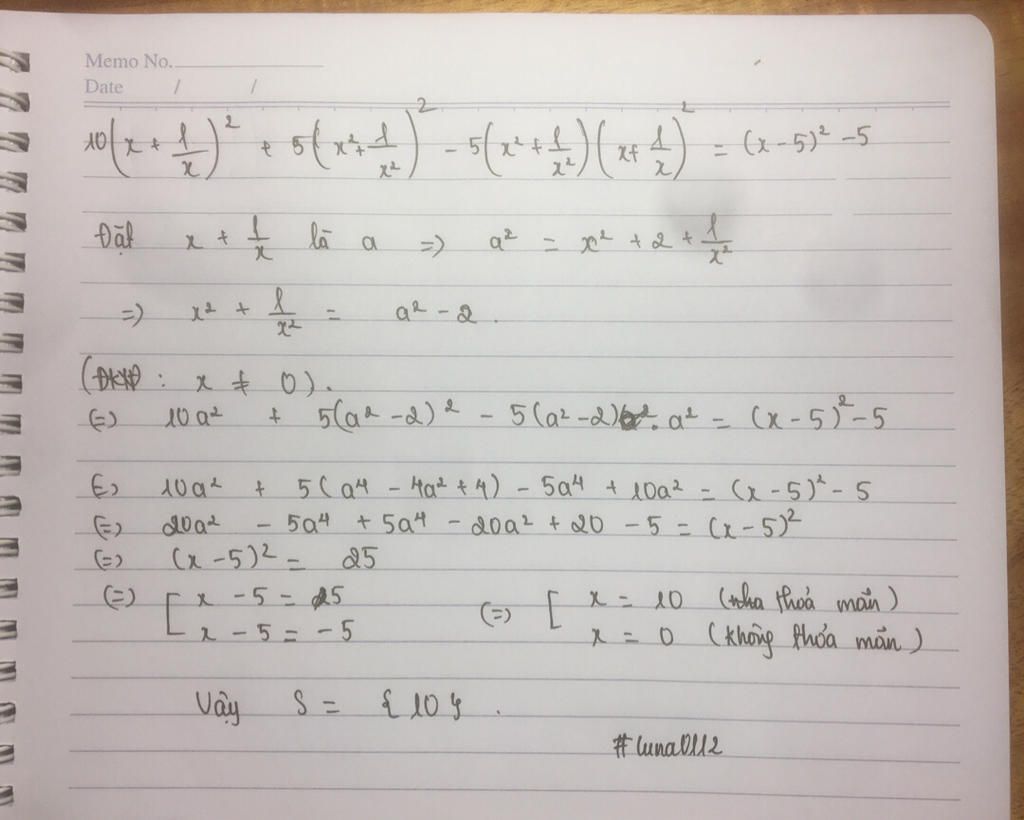 Memo No.
Date / /
10(x + 1/x)² + 5(x² + 1/x²)² - 5(x² + 1/x²)(x + 1/x)² = (x - 5)² - 5
Đặt x + 1/x là a => a² = x² + 2 + 1/x²
=> x² + 1/x² = a² - 2.
(ĐKXĐ : x ≠ 0).
(=) 10a² + 5(a² - 2)² - 5(a² - 2). a² = (x - 5)² - 5
(=) 10a² + 5(a⁴ - 4a² + 4) - 5a⁴ + 10a² = (x - 5)² - 5
(=) 20a² - 5a⁴ + 5a⁴ - 20a² + 20 - 5 = (x - 5)²
(=) (x - 5)² = 25
(=) [ x - 5 = 5 (=) [ x = 10 (thỏa mãn)
x - 5 = -5 x = 0 (không thỏa mãn)
Vậy S = {10}.
#luna0112